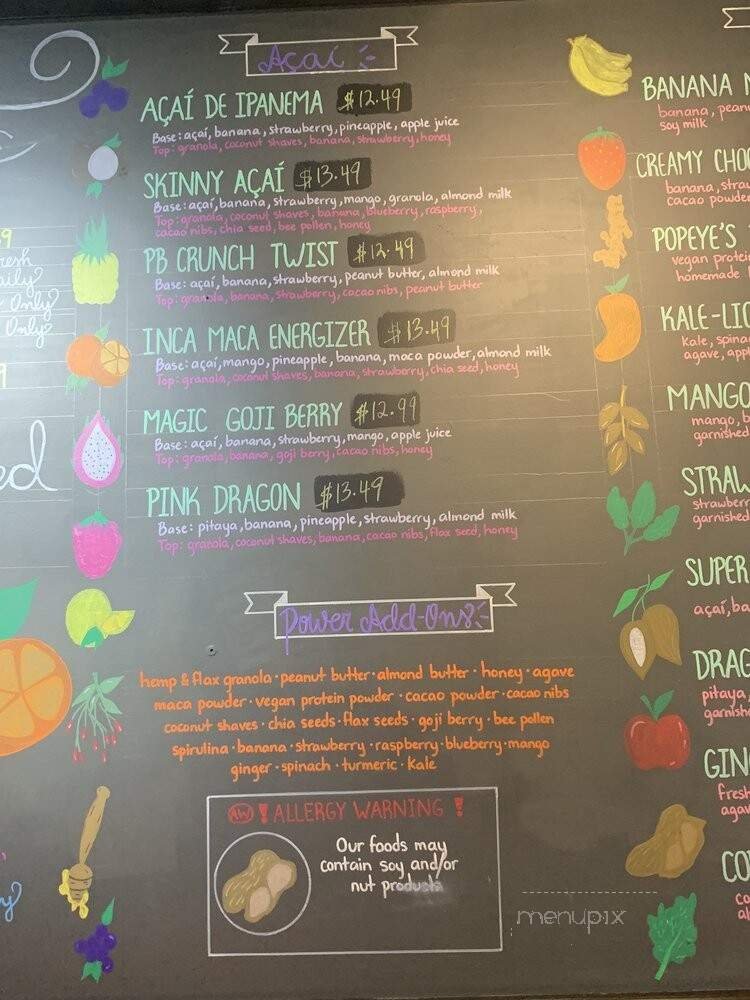 Açaí
AÇAÍ DE IPANEMA $12.49
Base: açaí, banana, strawberry, pineapple, apple juice
Top: granola, coconut shaves, banana, strawberry, honey
SKINNY AÇAÍ $13.49
Base: açaí, banana, strawberry, mango, granola, almond milk
Top: granola, coconut shaves, banana, blueberry, raspberry,
cacao nibs, chia seed, bee pollen, honey
PB CRUNCH TWIST $12.49
Base: açaí, banana, strawberry, peanut butter, almond milk
Top: granola, banana, strawberry, cacao nibs, peanut butter
INCA MACA ENERGIZER $13.49
Base: açaí, mango, pineapple, banana, maca powder, almond milk
Top: granola, coconut shaves, banana, strawberry, chia seed, honey
MAGIC GOJI BERRY $12.99
Base: açaí, banana, strawberry, mango, apple juice
Top: granola, banana, goji berry, cacao nibs, honey
PINK DRAGON $13.49
Base: pitaya, banana, pineapple, strawberry, almond milk
Top: granola, coconut shaves, banana, cacao nibs, flax seed, honey
Power Add-Ons
hemp & flax granola · peanut butter · almond butter · honey · agave
maca powder · vegan protein powder · cacao powder · cacao nibs
coconut shaves · chia seeds · flax seeds · goji berry · bee pollen
spirulina · banana · strawberry · raspberry · blueberry · mango
ginger · spinach · turmeric · kale
AW ! ALLERGY WARNING !
Our foods may
contain soy and/or
nut products
Only
Only
BANANA
banana,
soy milk
CREAMY
banana,
cacao powder
POPEYE'S
vegan protein
homemade
KALE-
kale,
agave,
MANGO
mango,
garnished
strawberry
garnished
SUPER
açaí,
pitaya,
fresh
menupix